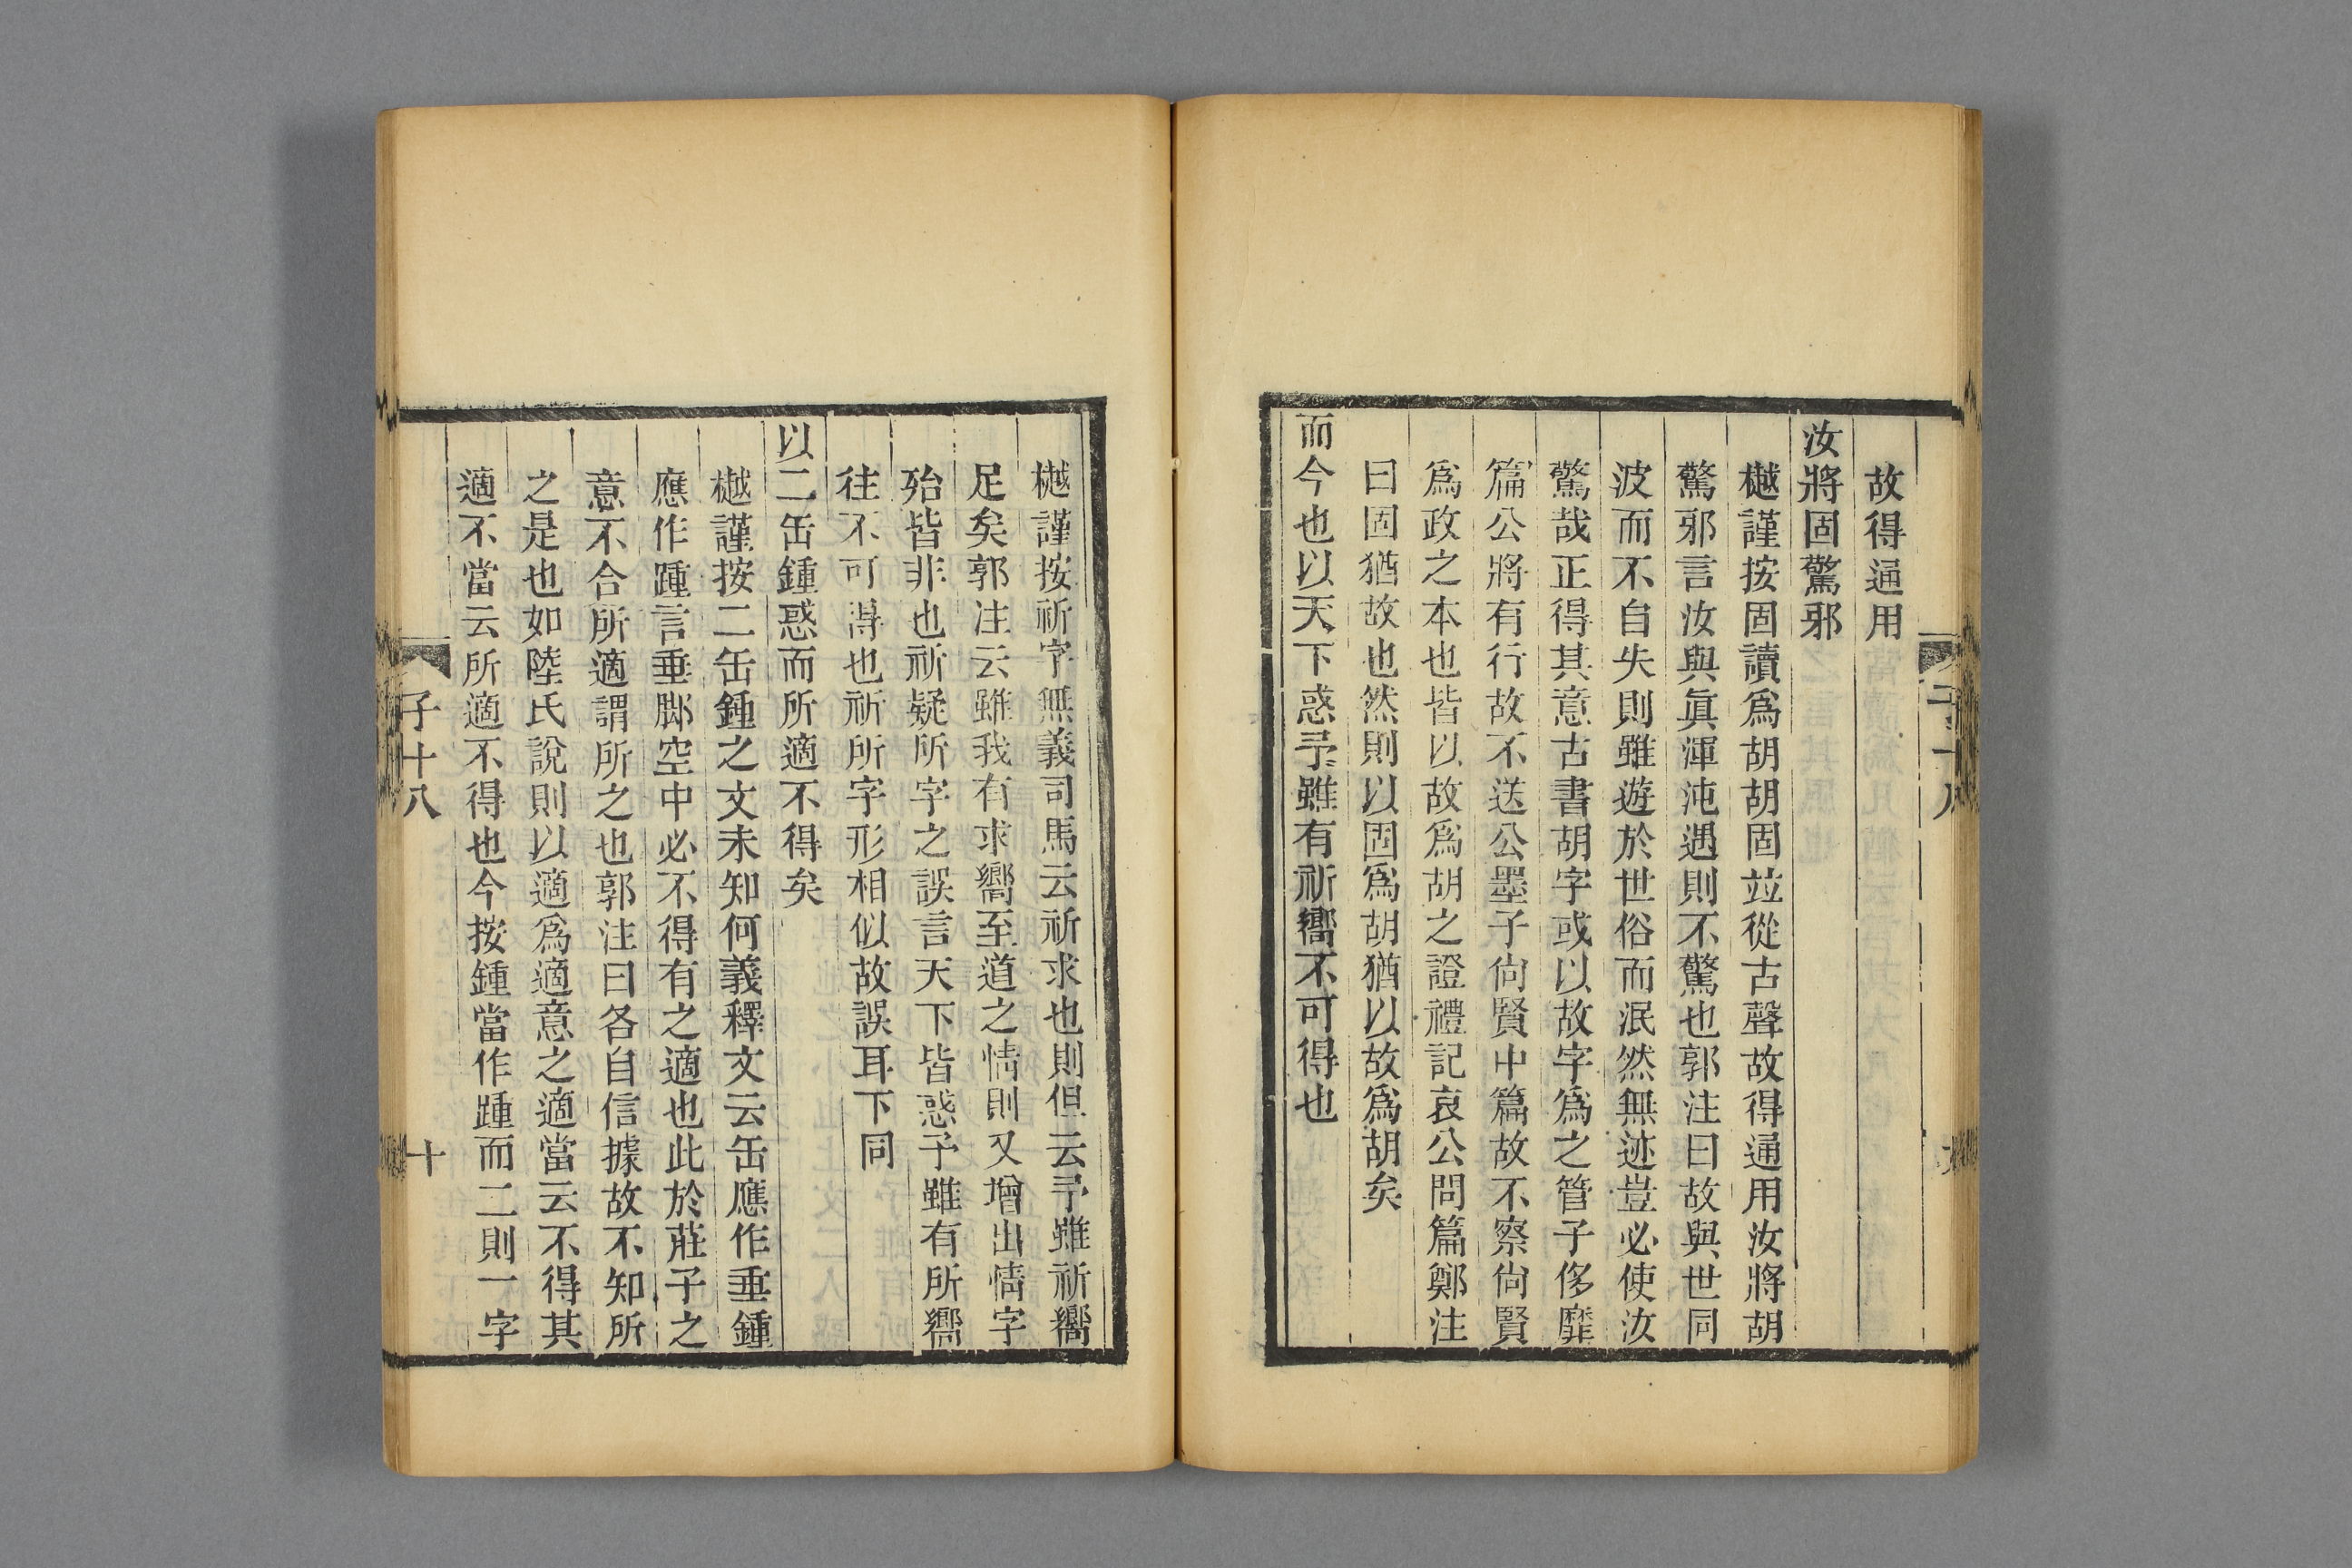 故得通用
汝將固驚邪
樾謹按固讀爲胡胡固竝從古聲故得通用汝將胡
驚邪言汝與眞渾沌遇則不驚也郭注曰故與世同
波而不自失則雖遊於世俗而泯然無迹豈必使汝
驚哉正得其意古書胡字或以故字爲之管子侈靡
篇公將有行故不送公墨子尙賢中篇故不察尙賢
爲政之本也皆以故爲胡之證禮記哀公問篇鄭注
曰固猶故也然則以固爲胡猶以故爲胡矣
而今也以天下惑予雖有祈嚮不可得也
樾謹按祈字無義司馬云祈求也則但云予雖祈嚮
足矣郭注云雖我有求嚮至道之情則又增出情字
殆皆非也祈疑所字之誤言天下皆惑予雖有所嚮
往不可得也祈所字形相似故誤耳下同
以二缶鍾惑而所適不得矣
樾謹按二缶鍾之文未知何義釋文云缶應作垂鍾
應作踵言垂脚空中必不得有之適也此於莊子之
意不合所適謂所之也郭注曰各自信據故不知所
之是也如陸氏說則以適爲適意之適當云不得其
適不當云所適不得也今按鍾當作踵而二則一字
子十八
十